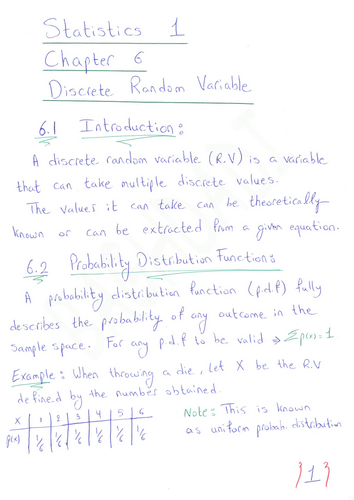 Statistics 1
Chapter 6
Discrete Random Variable
6.1 Introduction:
A discrete random variable (R.V) is a variable
that can take multiple discrete values.
The values it can take can be theoretically
known or can be extracted from a given equation.
6.2 Probability Distribution Function:
A probability distribution function (p.d.f) fully
describes the probability of any outcome in the
sample space. For any p.d.f to be valid → Σp(x)=1
Example: When throwing a die, let X be the R.V
defined by the number obtained.
X 1 2 3 4 5 6
p(x) 1/6 1/6 1/6 1/6 1/6 1/6
Note: This is known
as uniform probab. distribution
}1}